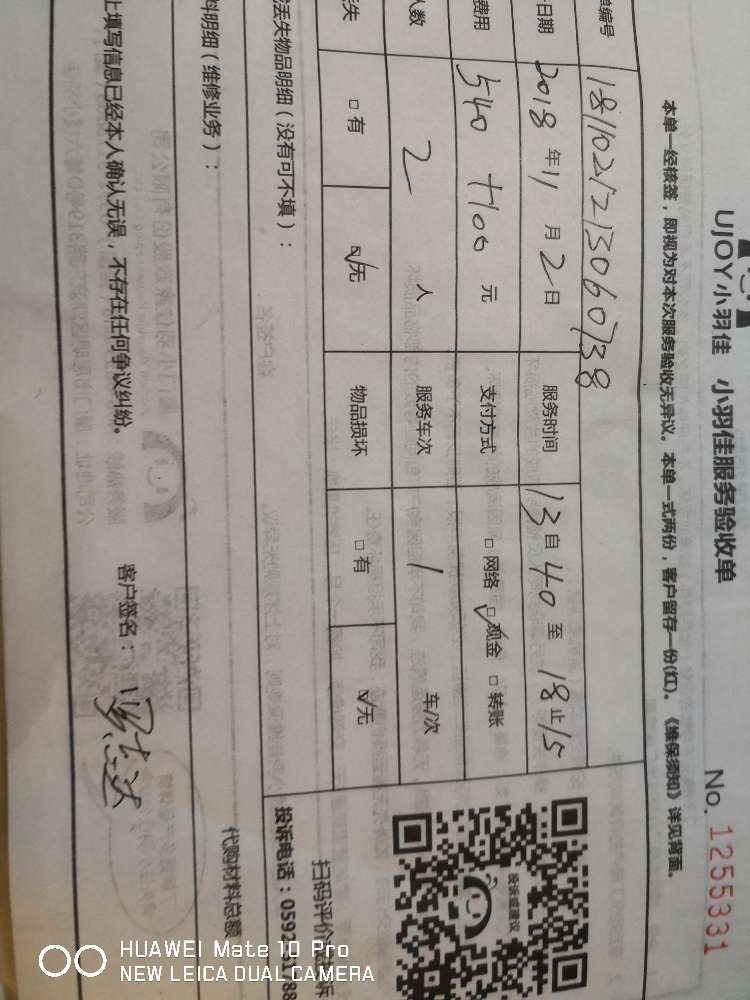 UJOY小羽佳 小羽佳服务验收单 No. 1255331
本单一经核签，即视为对本次服务验收无异议。本单一式两份，客户留存一份(红)。《维保须知》详见背面。
单编号 1811021213060738
日期 2018年11月2日 服务时间 13自40至18止15
费用 540 +100 元 支付方式 □网络 ☑现金 □转账
人数 2 人 服务车次 1 车/次
丢失 □有 ☑无 物品损坏 □有 ☑无
丢失物品明细（没有可不填）：
扫码评价
投诉电话：0592
料明细（维修业务）：
代购材料总额
上填写信息已经本人确认无误，不存在任何争议纠纷。 客户签名：
投诉或建议
HUAWEI Mate 10 Pro
NEW LEICA DUAL CAMERA